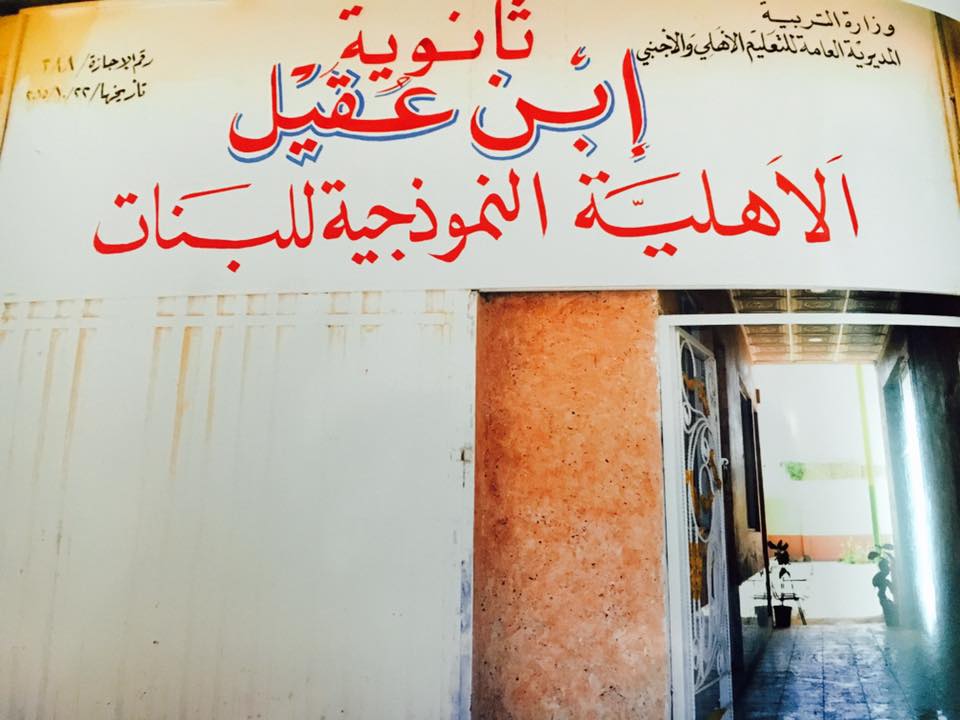 وزارة التربية
المديرية العامة للتعليم الأهلي والأجنبي
رقم الإجازة /
تاريخها / ٢٠١٥/١٠/٢٢
ثانوية
إبن عقيل
الأهليّة النموذجية للبنات